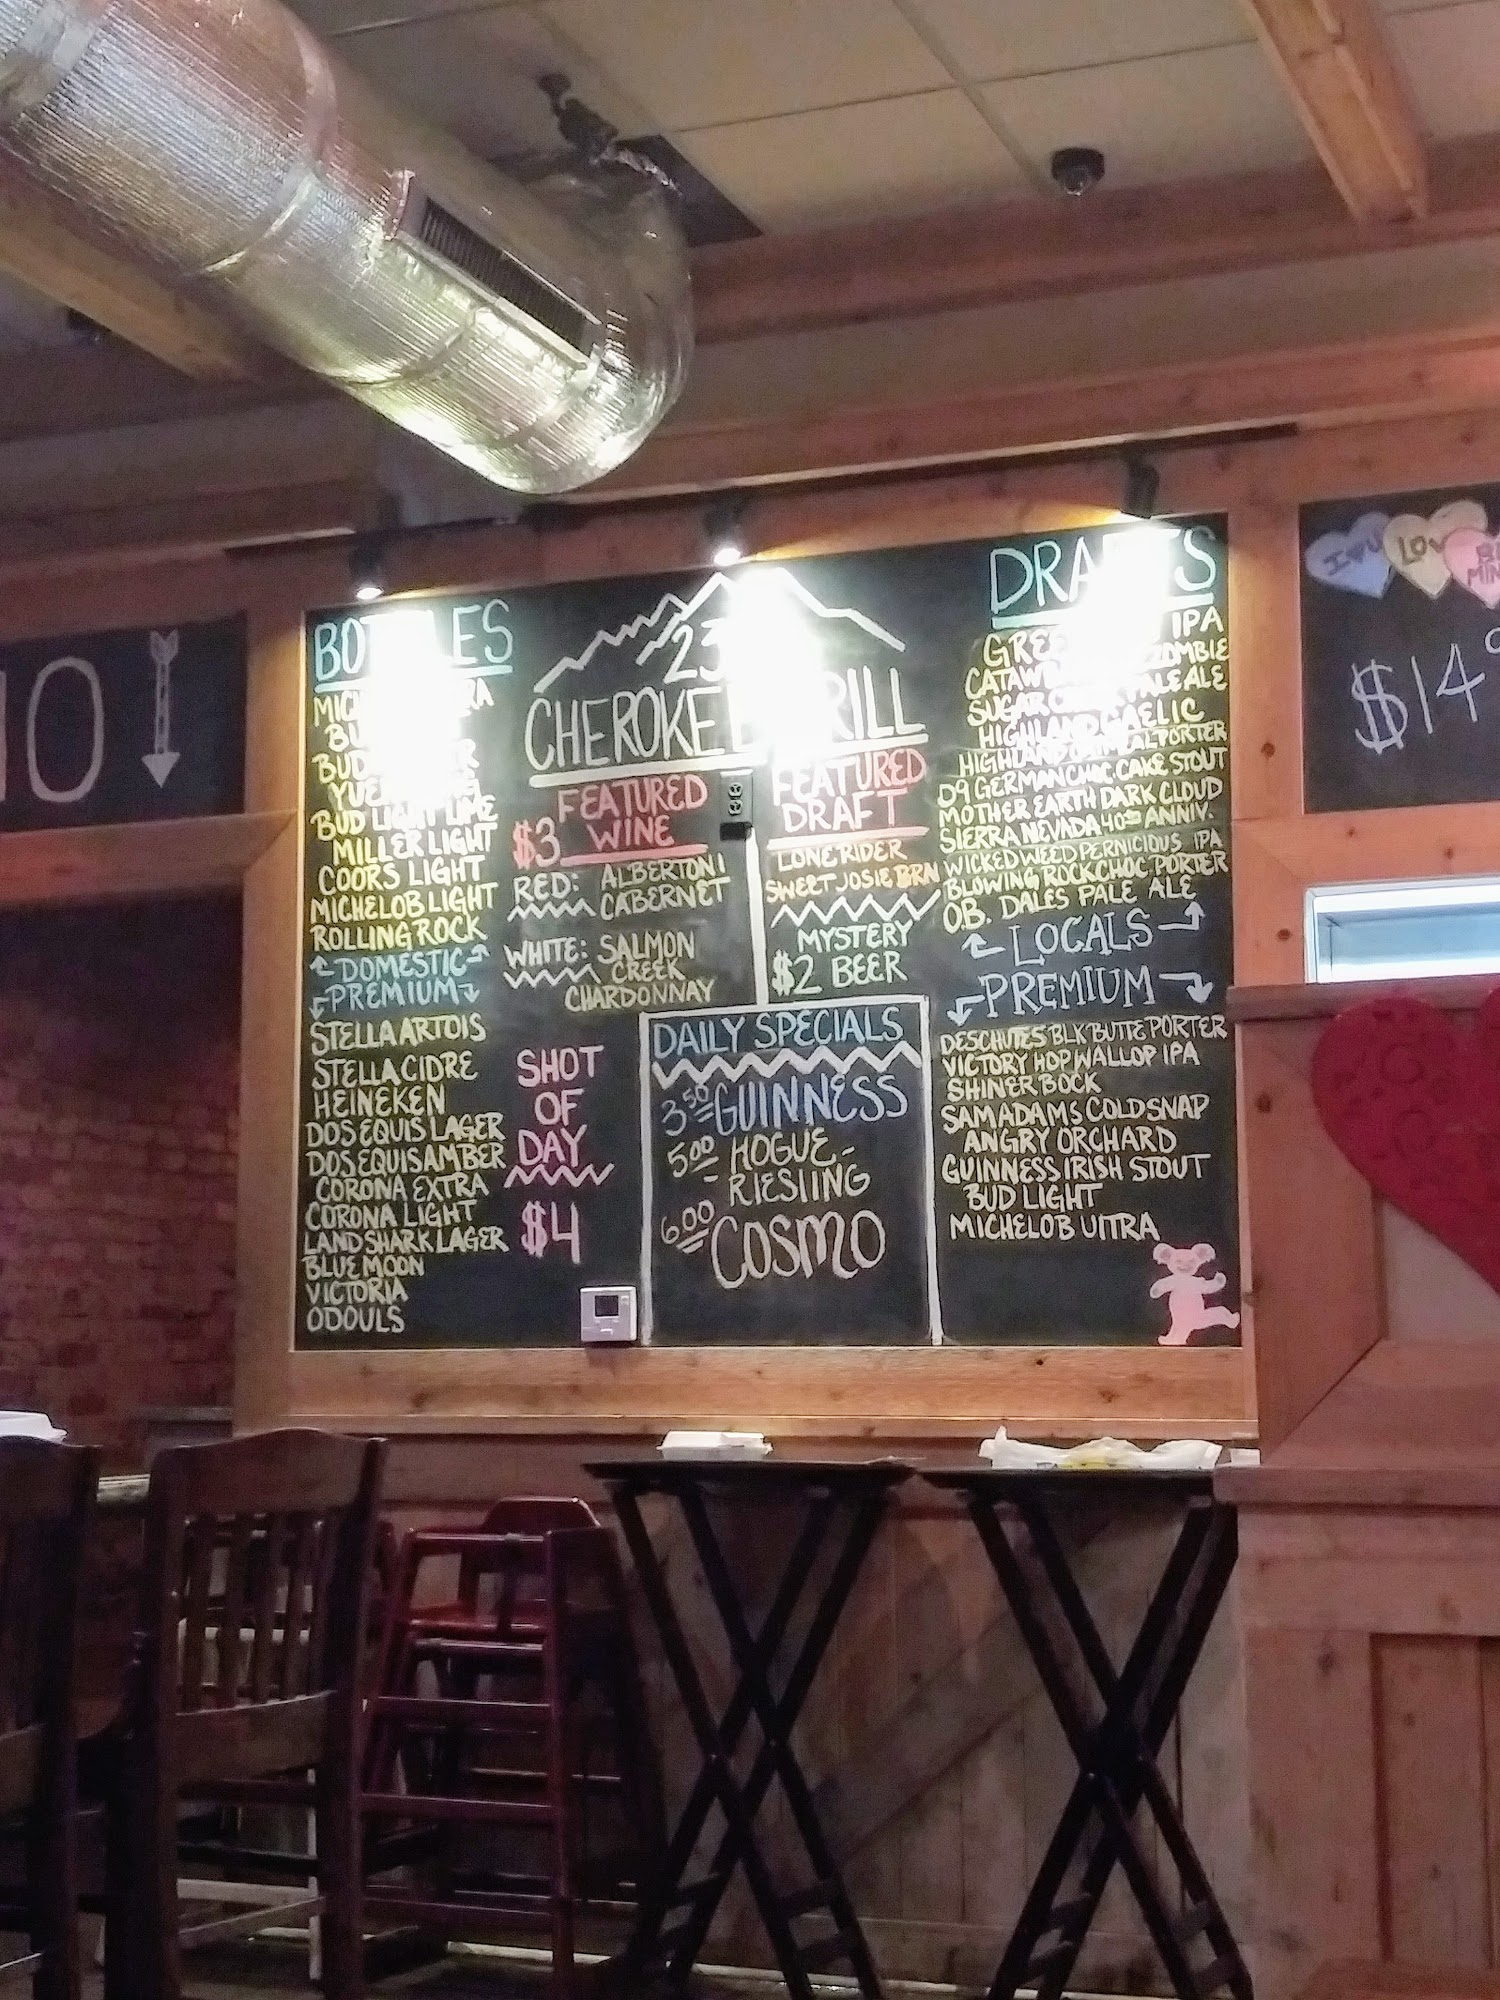 NO
BOTTLES
BUD LIGHT LIME
MILLER LIGHT
COORS LIGHT
MICHELOB LIGHT
ROLLING ROCK
DOMESTIC
PREMIUM
STELLA ARTOIS
STELLA CIDRE
HEINEKEN
DOS EQUIS LAGER
DOS EQUIS AMBER
CORONA EXTRA
CORONA LIGHT
LANDSHARK LAGER
BLUE MOON
VICTORIA
ODOULS
23
CHEROKEE GRILL
FEATURED
$3 WINE
RED: ALBERTONI
CABERNET
WHITE: SALMON
CREEK
CHARDONNAY
SHOT
OF
DAY
$4
FEATURED
DRAFT
LONERIDER
SWEET JOSIE BRN
MYSTERY
$2 BEER
DAILY SPECIALS
3.50 GUINNESS
5.00 HOGUE-
RIESLING
6.00 COSMO
DRAFTS
IPA
ZOMBIE
SUGAR PALE ALE
HIGHLAND GAELIC
HIGHLAND OATMEAL PORTER
D9 GERMAN CHOC. CAKE STOUT
MOTHER EARTH DARK CLOUD
SIERRA NEVADA 40TH ANNIV.
WICKED WEED PERNICIOUS IPA
BLOWING ROCK CHOC. PORTER
O.B. DALES PALE ALE
LOCALS
PREMIUM
DESCHUTES BLK BUTTE PORTER
VICTORY HOP WALLOP IPA
SHINER BOCK
SAM ADAMS COLD SNAP
ANGRY ORCHARD
GUINNESS IRISH STOUT
BUD LIGHT
MICHELOB UITRA
I ♥ U
LOV
$14